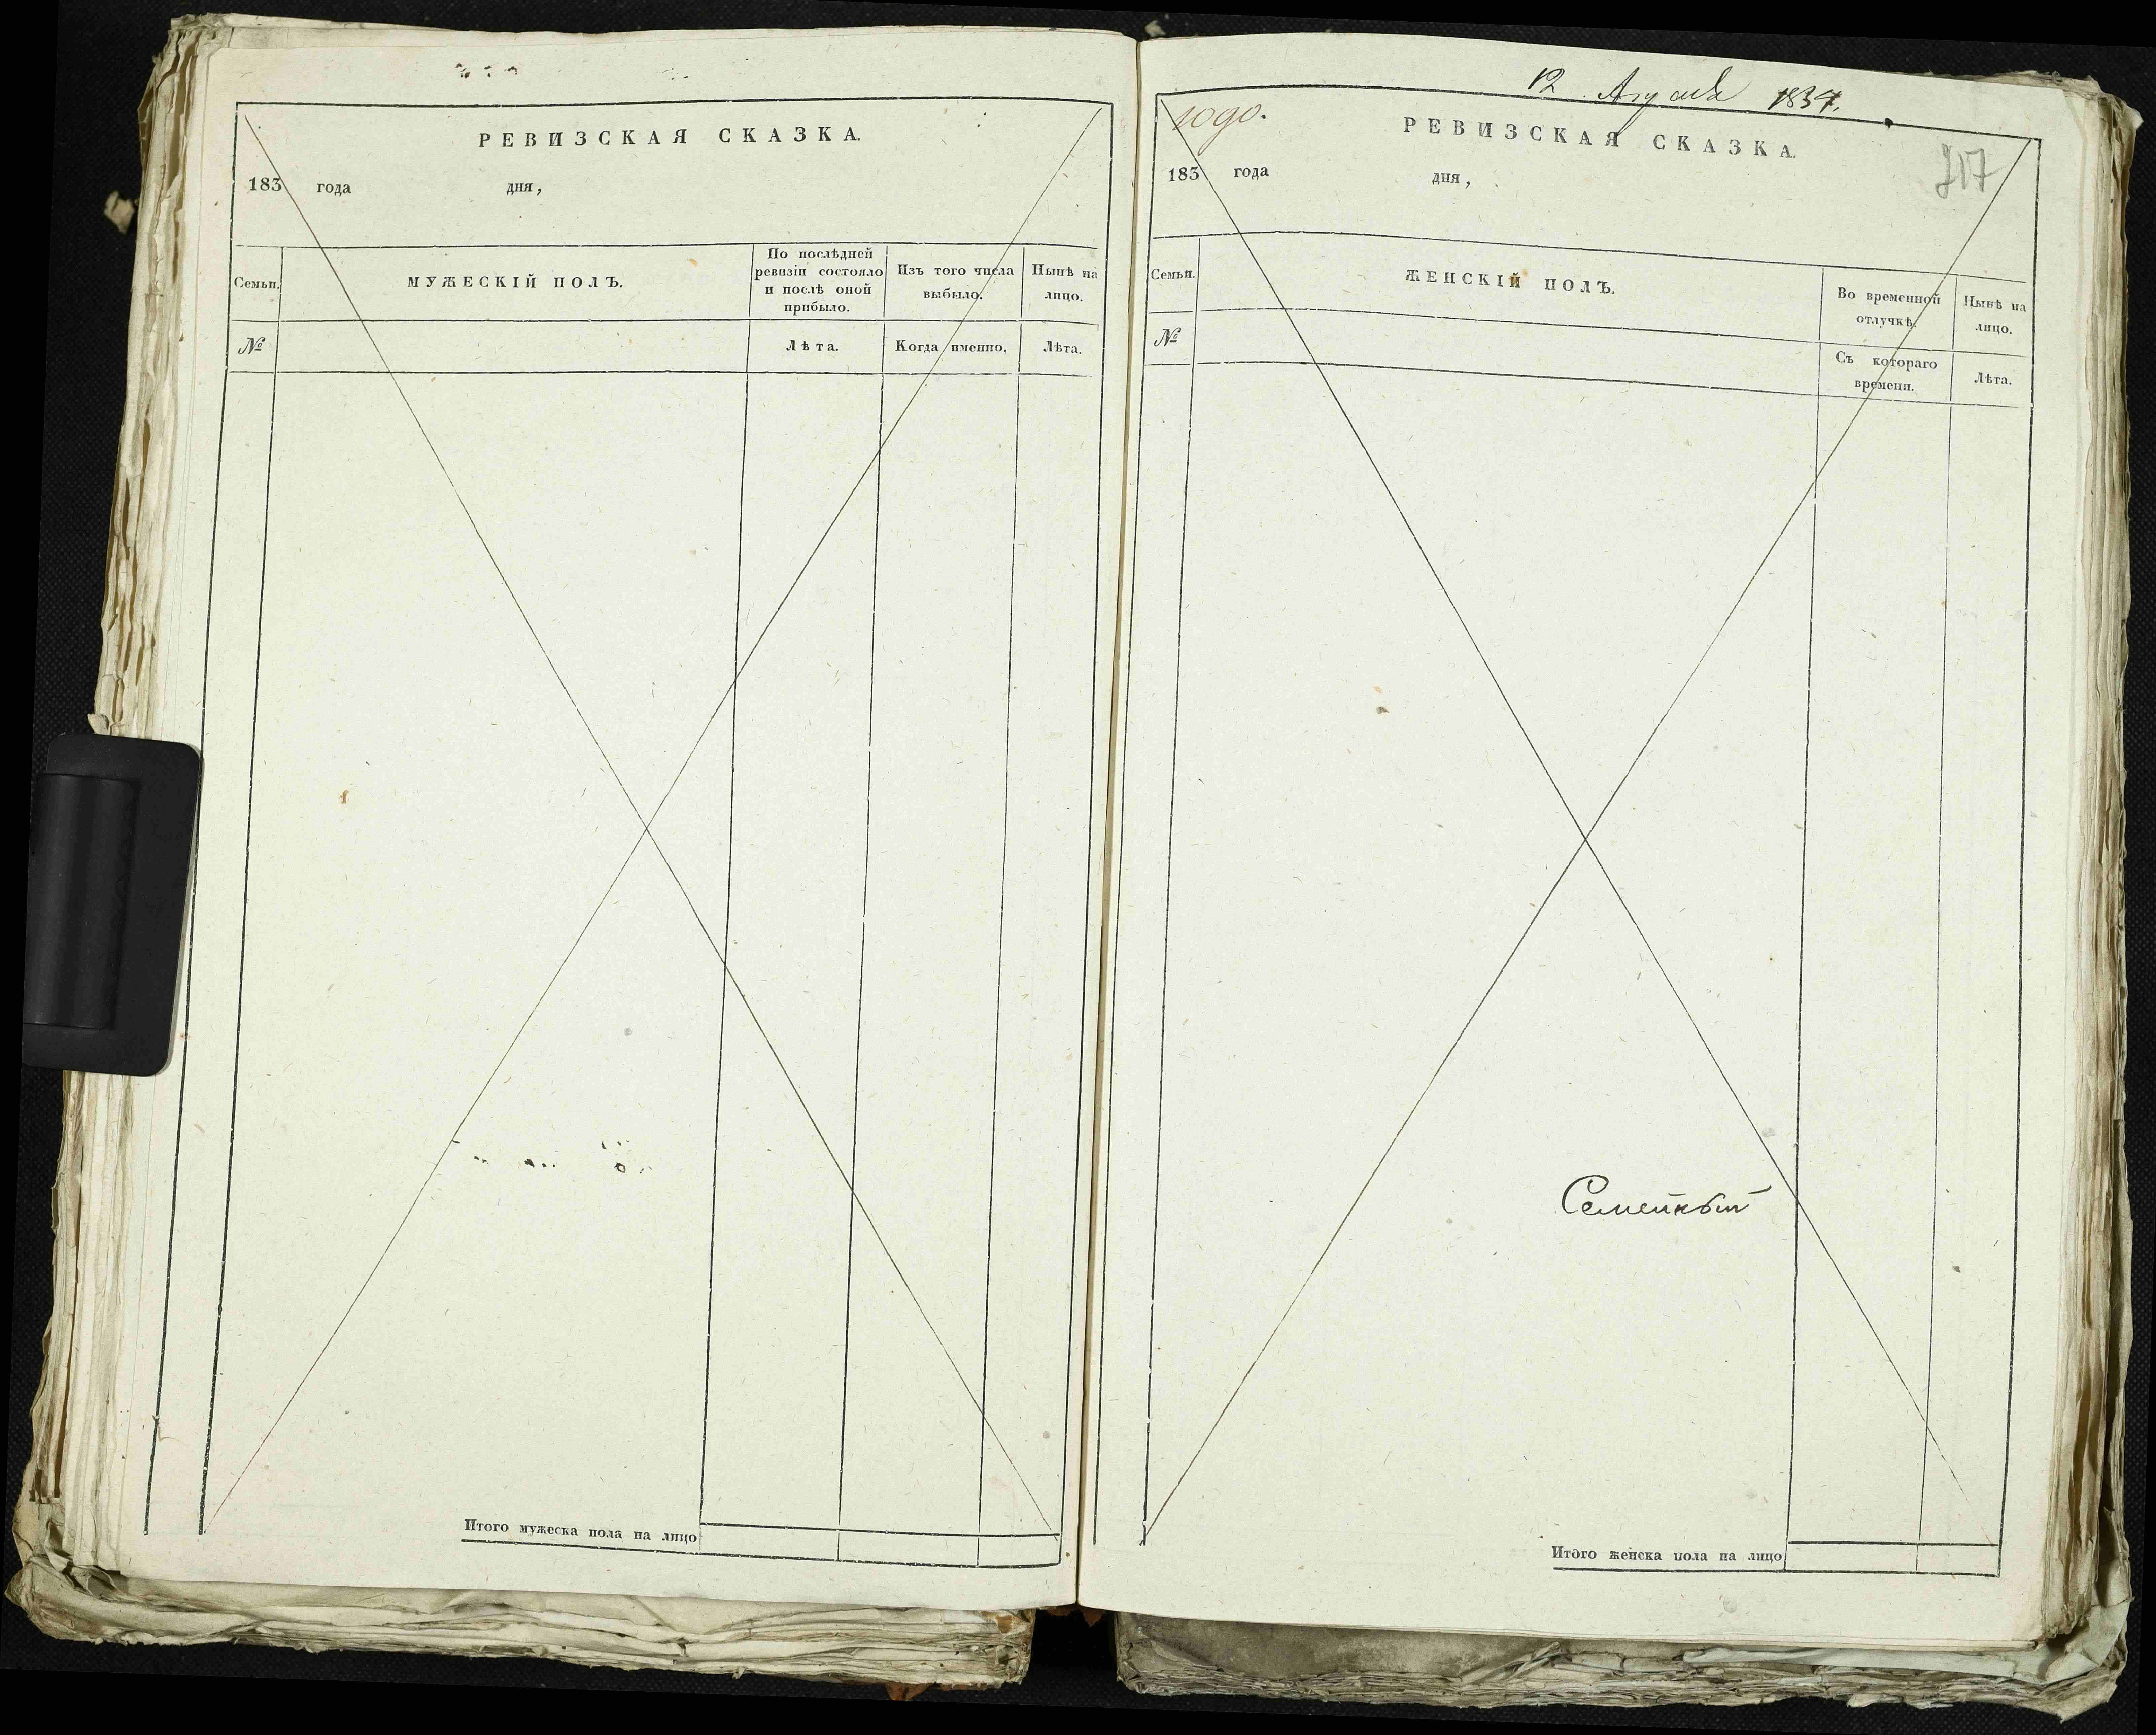 РЕВИЗСКАЯ СКАЗКА.
183 года дня,
Семьи.
МУЖЕСКІЙ ПОЛЪ.
По послѣдней
ревизіи состояло
и послѣ оной
прибыло.
Изъ того числа
выбыло.
Нынѣ на
лицо.
№
Лѣта.
Когда именно.
Лѣта.
Итого мужеска пола на лицо
12 Августа 1834.
РЕВИЗСКАЯ СКАЗКА.
217
183 года дня,
Семьи.
ЖЕНСКІЙ ПОЛЪ.
Во временной
отлучкѣ.
Нынѣ на
лицо.
№
Съ котораго
времени.
Лѣта.
Итого женска пола на лицо